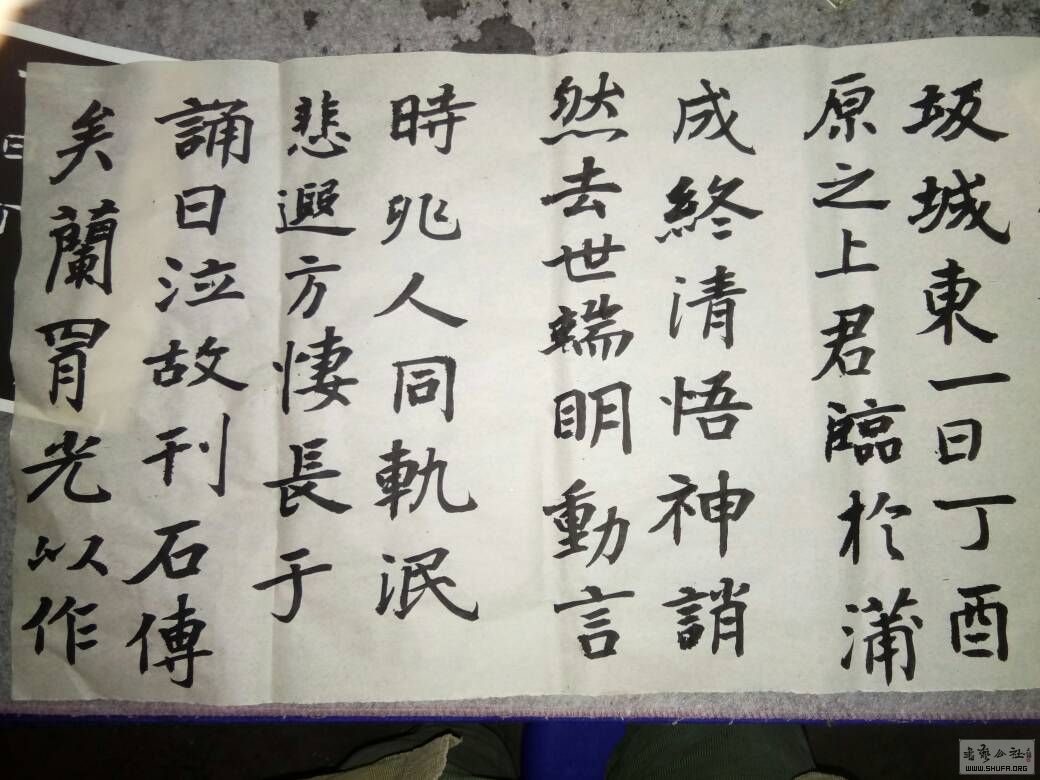 坂城東一日丁酉
原之上君臨於蒲
成終清悟神誚
然去世端明動言
時兆人同軌泯
悲遐方悽長于
誦曰泣故刊石傳
矣蘭胃光以作
書藝公社
WWW.SHUFA.ORG